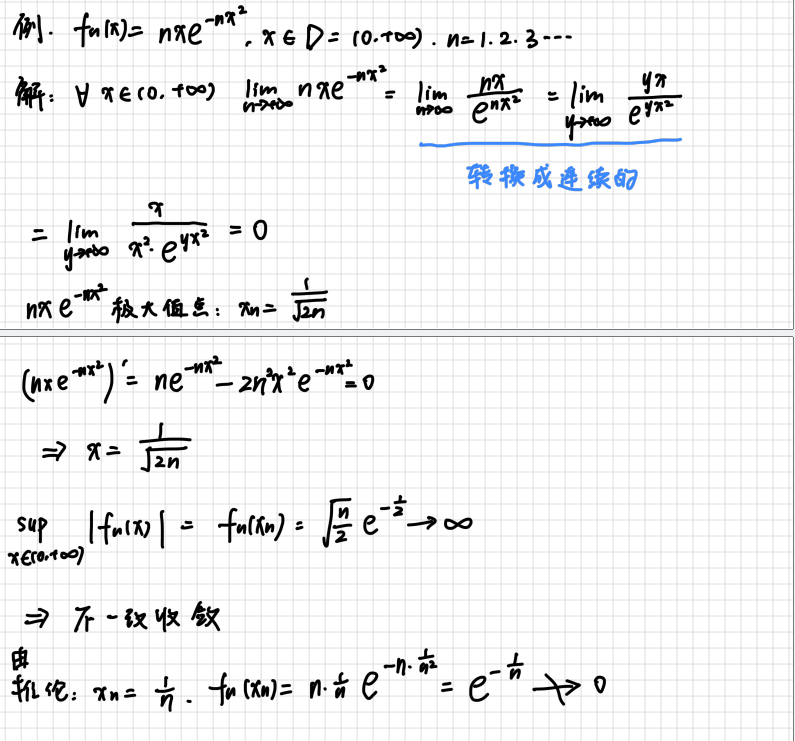 例. fn(x)= nxe^{-nx²}, x∈D=(0.+∞). n=1.2.3···
解: ∀ x∈(0.+∞) lim_{n→+∞} nxe^{-nx²} = lim_{n→+∞} nx/e^{nx²} = lim_{y→+∞} yx/e^{yx²}
转换成连续的
= lim_{y→+∞} x/(x²·e^{yx²}) = 0
nxe^{-nx²} 极大值点: xn= 1/√(2n)
(nxe^{-nx²})′= ne^{-nx²} - 2n²x²e^{-nx²}=0
⇒ x= 1/√(2n)
sup_{x∈(0.+∞)} |fn(x)| = fn(xn) = √(n/2) e^{-1/2} → ∞
⇒ 不一致收敛
由
推论: xn= 1/n. fn(xn)= n·1/n e^{-n·1/n²} = e^{-1/n} ↛ 0